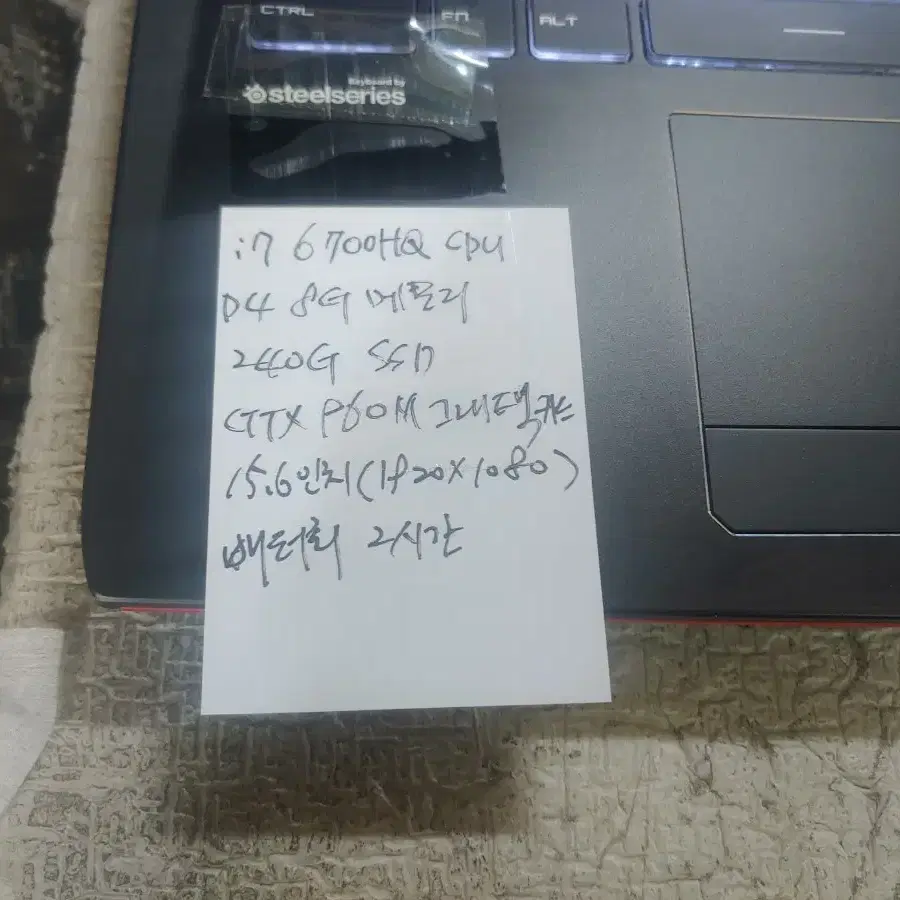 CTRL FN ALT
Keyboard by
steelseries
i7 6700HQ CPU
D4 8G 메모리
240G SSD
GTX 960M 그래픽카드
15.6인치(1920X1080)
배터리 2시간